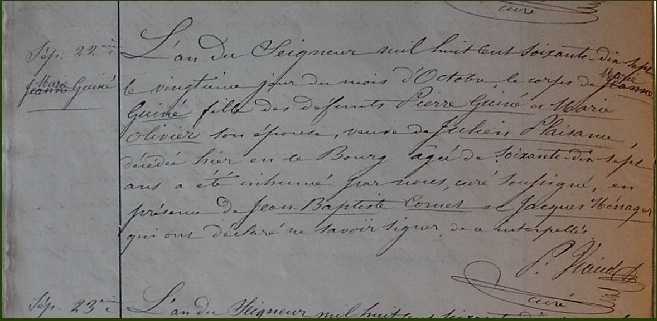 curé
Sép. 22ième
Marie
Jeanne Guiné
L'an du Seigneur mil huit cent soixante-dix sept
le vingtième jour du mois d'Octobre le corps de Jeanne
Marie
Guiné fille des defunts Pierre Guiné et Marie
Olivier son épouse, veuve de Julien Plaisance
décédée hier en le Bourg agée de soixante-dix sept
ans a été inhumé par nous, curé soussigné, en
présence de Jean Baptiste Cornet et Jacques Ménager
qui ont déclaré ne savoir signer, de ce interpellés
curé
Sép. 23ième
L'an du Seigneur mil huit cent soixante